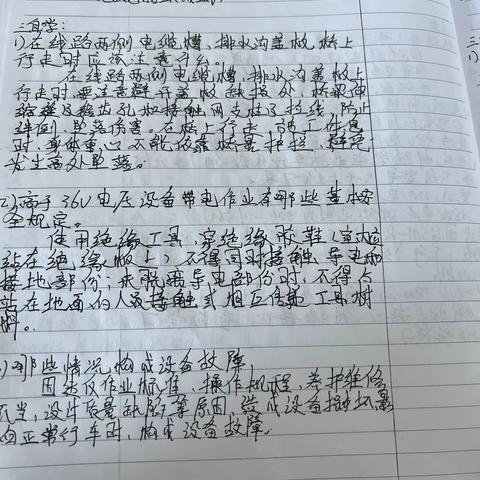 三自学:
1)在线路两侧电缆槽、排水沟盖板、桥上
行走时应该注意什么。
在线路两侧电缆槽、排水沟盖板上
行走时,要注意避开盖板缺损处、桥梁伸
缩缝及梳齿孔和接触网支柱下拉线,防止
绊倒、坠落伤害。在桥上行走、
时,身体重心不能依靠桥梁护栏,避免
发生高处坠落。
2)高于36V电压设备带电作业有哪些基本安
全规定。
使用绝缘工具,穿绝缘胶鞋(室内应
站在绝缘板上)不得同时接触导电和
接地部份,未脱离导电部份时,不得与
站在地面的人员接触或相互传递工具材
料。
)哪些情况构成设备故障
因违反作业标准、操作规程、养护维修
不当,设计质量缺陷等原因,造成设备损坏影
响正常行车时,构成设备故障。